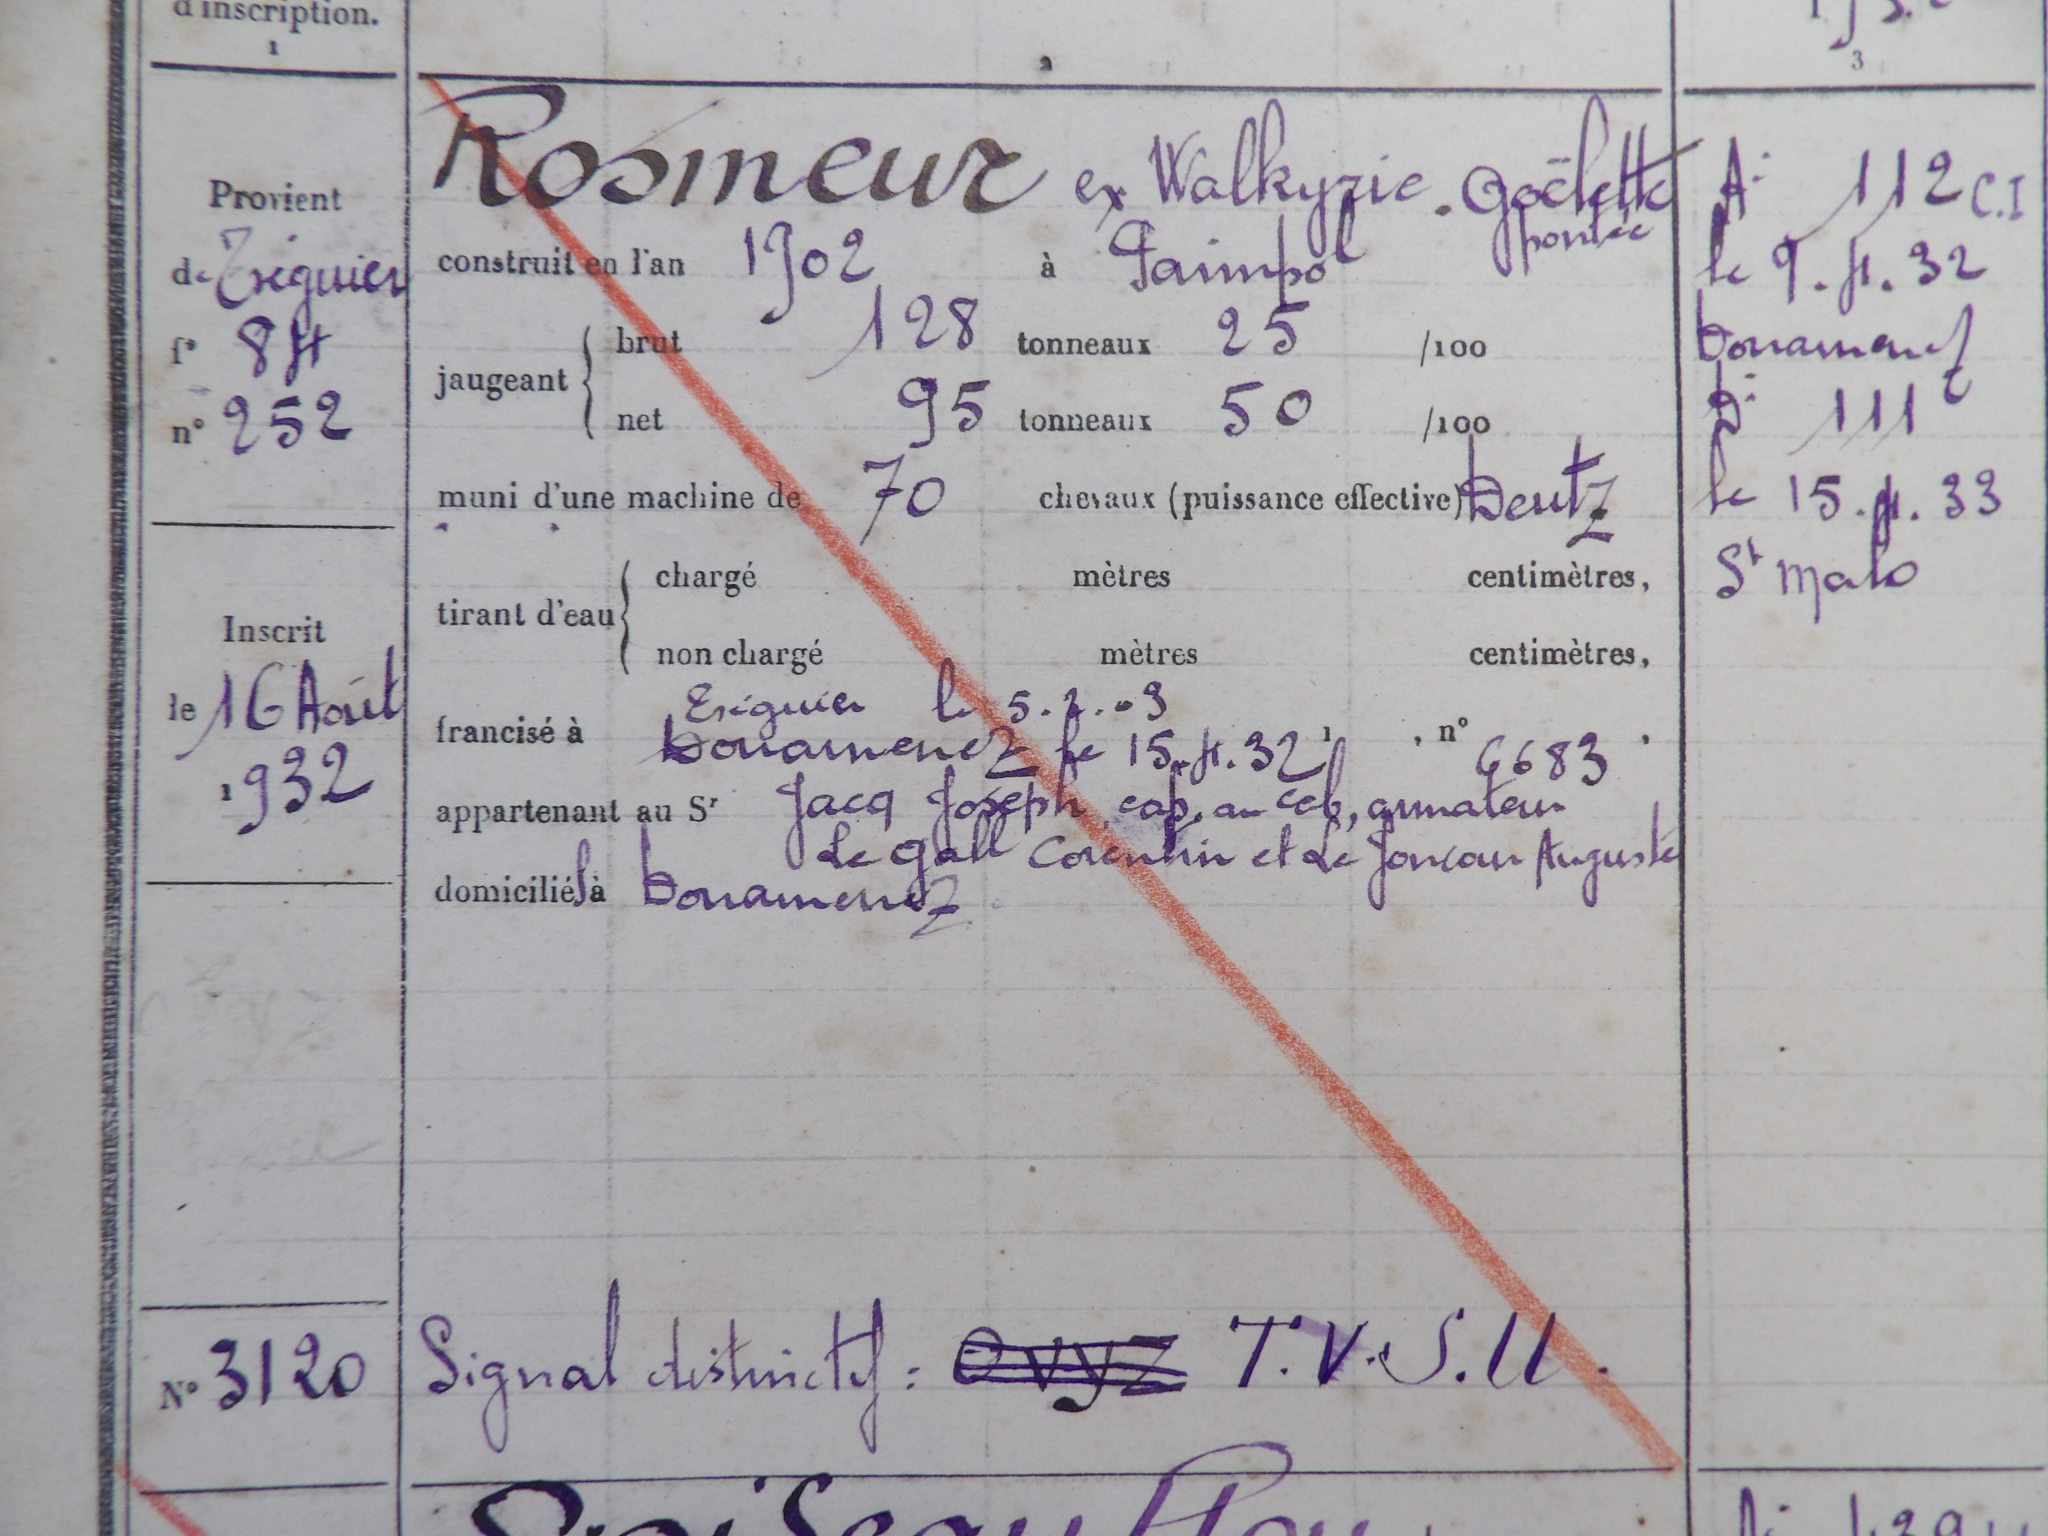 d'inscription.
1
2
3
Provient
de Tréguier
f° 84
n° 252
Inscrit
le 16 Août
1932
N° 3120
Rosmeur ex Walkyrie. Goëlette
pontée
construit en l'an 1902 à Paimpol
jaugeant brut 128 tonneaux 25 /100
net 95 tonneaux 50 /100
muni d'une machine de 70 chevaux (puissance effective) Deutz
tirant d'eau chargé mètres centimètres,
non chargé mètres centimètres,
Tréguier le 5.2.03
francisé à Douarnenez le 15.4.32, , n° 6683 ,
appartenant au Sr Jacq Joseph, cap. au cab, armateur
Le Gall Corentin et Le Joncour Auguste
domiciliés à Douarnenez
Signal distinctif : OVYZ T.V.S.U.
At 112 C.I
le 9.4.32
Douarnenez
Dt 111
le 15.4.33
St Malo